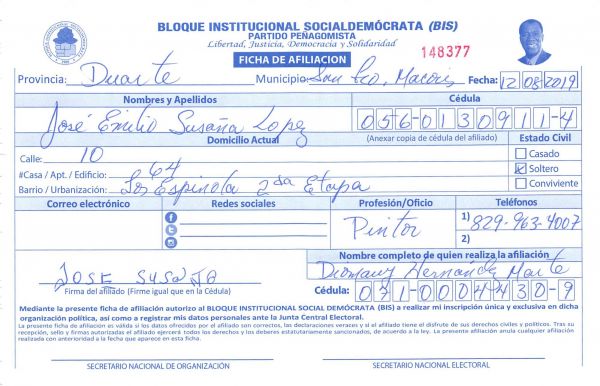 BLOQUE INSTITUCIONAL SOCIALDEMÓCRATA (BIS)
PARTIDO PEÑAGOMISTA
Libertad, Justicia, Democracia y Solidaridad
148377
FICHA DE AFILIACION
Provincia: Duarte Municipio: San Fco. Macoris Fecha: 12/08/2019
Nombres y Apellidos Cédula
José Emilio Susaña Lopez 056-0130911-4
Domicilio Actual (Anexar copia de cédula del afiliado) Estado Civil
Calle: 10 Casado
#Casa / Apt. / Edificio: 64 Soltero
Barrio / Urbanización: Los Espinola 2da Etapa Conviviente
Correo electrónico Redes sociales Profesión/Oficio Teléfonos
Pintor 1) 829-963-4007
2)
Nombre completo de quien realiza la afiliación
JOSE SUSAÑA Hernandez Marte
Firma del afiliado (Firme igual que en la Cédula) Cédula: 071-0004430-9
Mediante la presente ficha de afiliación autorizo al BLOQUE INSTITUCIONAL SOCIAL DEMÓCRATA (BIS) a realizar mi inscripción única y exclusiva en dicha
organización política, así como a registrar mis datos personales ante la Junta Central Electoral.
La presente ficha de afiliación es válida si los datos ofrecidos por el afiliado son correctos, las declaraciones veraces y si el afiliado tiene el disfrute de sus derechos civiles y políticos. Tras su
recepción, sello y firmas autorizadas el afiliado ejercerá todos los derechos y los deberes estatutariamente sancionados, de acuerdo a la ley. La presente afiliación anula cualquier afiliación
realizada con anterioridad a la fecha que aparece en esta ficha.
SECRETARIO NACIONAL DE ORGANIZACIÓN SECRETARIO NACIONAL ELECTORAL